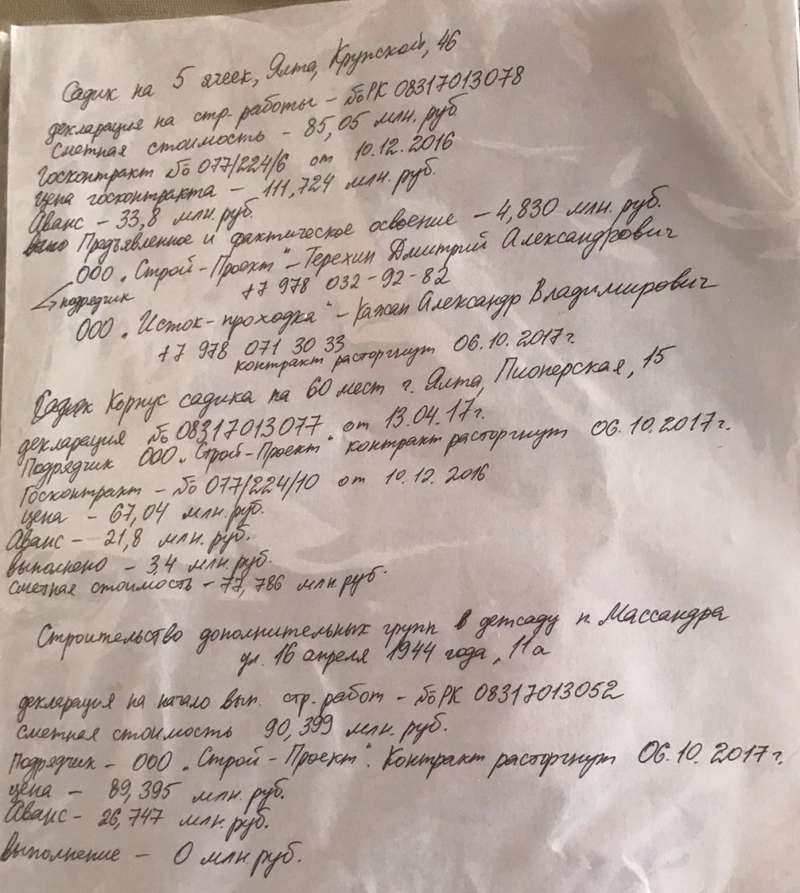 Садик на 5 ячеек, Ялта, Крупской, 46
декларация на стр. работы – №РК 08317013078
Сметная стоимость – 85,05 млн.руб.
Госконтракт №017/224/6 от 10.12.2016
цена госконтракта – 111,724 млн.руб.
Аванс – 33,8 млн.руб.
Предъявленное и фактическое освоение – 4,830 млн.руб.
ООО „Строй-Проект" – Терехин Дмитрий Александрович
подрядчик +7 978 032-92-82
ООО „Исток-проходка" – Кажан Александр Владимирович
+7 978 071 30 33
контракт расторгнут 06.10.2017г.
Корпус садика на 60 мест г. Ялта, Пионерская, 15
декларация №08317013077 от 13.04.17г.
Подрядчик ООО „Строй-Проект" контракт расторгнут 06.10.2017г.
Госконтракт – №017/224/10 от 10.12.2016
цена – 67,04 млн.руб.
Аванс – 21,8 млн.руб.
выполнено – 3,4 млн.руб.
сметная стоимость – 77,786 млн.руб.
Строительство дополнительных групп в детсаду п. Массандра
ул. 16 апреля 1944 года, 11а
декларация на начало вып. стр. работ – №РК 08317013052
сметная стоимость 90,399 млн.руб.
Подрядчик – ООО „Строй-Проект". Контракт расторгнут 06.10.2017г.
цена – 89,395 млн.руб.
Аванс – 26,747 млн.руб.
выполнение – 0 млн.руб.